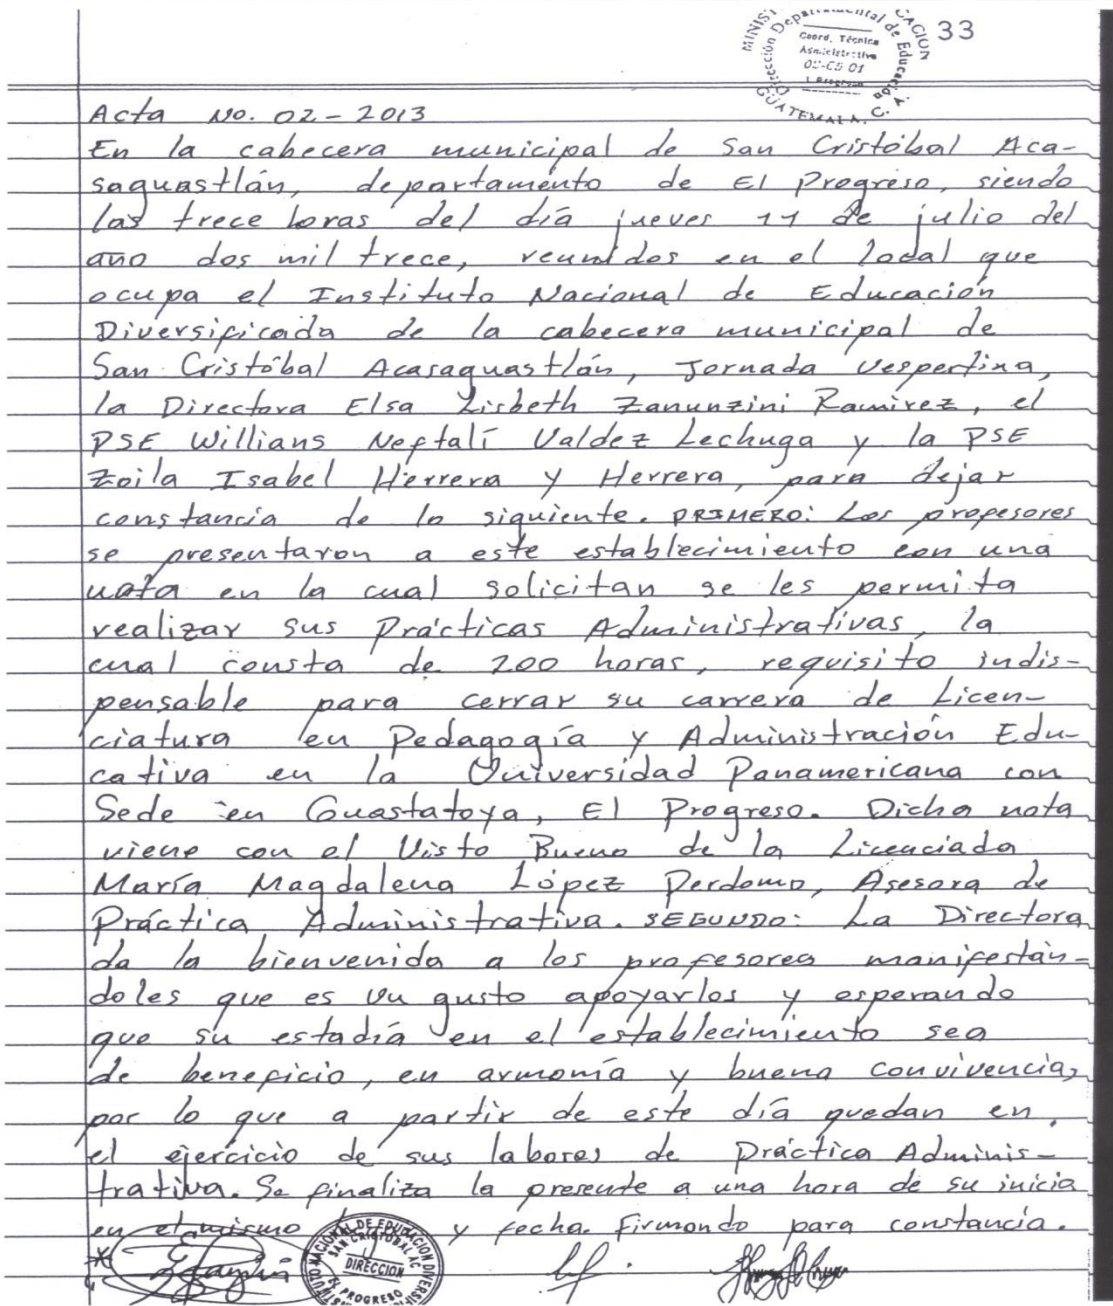 33
MINIST CACIÓN
Dirección Departamental de Educación
Coord. Técnica
Administrativa
GUATEMALA, C. A.
Acta No. 02-2013
En la cabecera municipal de San Cristóbal Aca-
saguastlán, departamento de El Progreso, siendo
las trece horas del día jueves 11 de julio del
año dos mil trece, reunidos en el local que
ocupa el Instituto Nacional de Educación
Diversificada de la cabecera municipal de
San Cristóbal Acasaguastlán, Jornada Vespertina,
la Directora Elsa Lisbeth Zanunzini Ramírez, el
PSE Willians Neftalí Valdez Lechuga y la PSE
Zoila Isabel Herrera y Herrera, para dejar
constancia de lo siguiente. PRIMERO: Los profesores
se presentaron a este establecimiento con una
nota en la cual solicitan se les permita
realizar sus Prácticas Administrativas, la
cual consta de 200 horas, requisito indis-
pensable para cerrar su carrera de Licen-
ciatura en Pedagogía y Administración Edu-
cativa en la Universidad Panamericana con
Sede en Guastatoya, El Progreso. Dicha nota
viene con el Visto Bueno de la Licenciada
María Magdalena López Perdomo, Asesora de
Práctica Administrativa. SEGUNDO: La Directora
da la bienvenida a los profesores manifestán-
doles que es un gusto apoyarlos y esperando
que su estadía en el establecimiento sea
de beneficio, en armonía y buena convivencia,
por lo que a partir de este día quedan en
el ejercicio de sus labores de Práctica Adminis-
trativa. Se finaliza la presente a una hora de su inicio
en el mismo y fecha. Firmando para constancia.
NACIONAL DE EDUCACION DIVERSIF
SAN CRISTOBAL AC
DIRECCION
EL PROGRESO